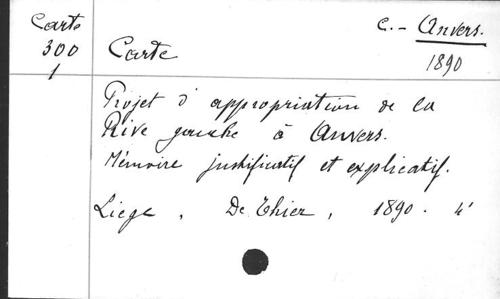 Carts c. - Anvers.
300 Carte 1890
1
Projet d'appropriation de la
Rive gauche à Anvers.
Mémoire justificatif et explicatif.
Liege, De Thier, 1890. 4°